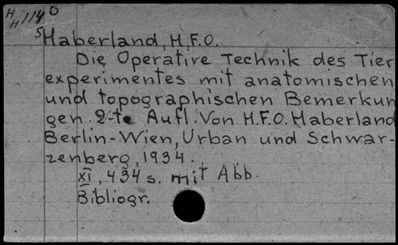 H H 1140
5
Haberland, H.F.O.
Die Operative Technik des Tier
experimentes mit anatomischen
und topographischen Bemerkun
gen. 2-te Aufl. Von H.F.O. Haberland
Berlin-Wien, Urban und Schwar-
zenberg, 1934.
XI, 434 s. mit Abb.
Bibliogr.